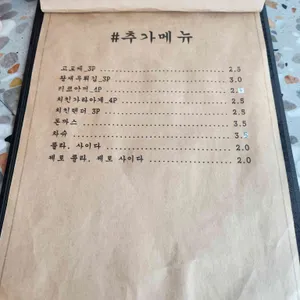 #추가메뉴
고로케_3P 2.5
왕새우튀김_3P 3.0
타코야끼_4P 2.
치킨가라아게_4P 2.5
치킨텐더 3P 2.5
돈까스 3.5
차슈 3.5
콜라, 사이다 2.0
제로 콜라, 제로 사이다 2.0